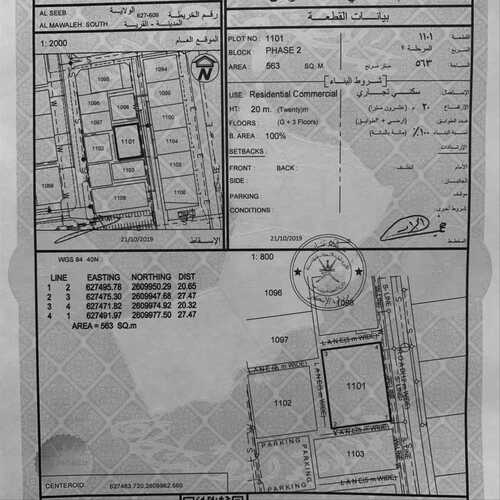 AL SEEB
الولاية
627-609
رقم الخريطة
AL MAWALEH: SOUTH
المدينة - القرية
1: 2000
الموقع العام
N
1094
1095
1096
1097
1101
1102
1103
1099
1106
1108
21/10/2019
الإسقاط
بيانات القطعة
PLOT NO
1101
١١٠١
BLOCK
PHASE 2
المرحلة ٢
المربع
AREA :
563
SQ. M
٥٦٣
شروط البناء
USE
Residential Commercial
سكني تجاري
الاستعمال
HT:
20 m. (Twenty)m
٢٠ م (عشرون مترا)
الارتفاع
FLOORS :
(G + 3 Floors)
عدد الطوابق
B. AREA
100%
١٠٠٪ (مائة بالمائة)
SETBACKS :
الارتدادات
FRONT :
BACK :
الخلف
الأمام
SIDE :
الجانبان
PARKING :
مواقف
CONDITIONS :
شروط أخرى
21/10/2019
المخطط
WGS 84 40N
LINE EASTING NORTHING DIST
1 2 627495.78 2609950.29 20.65
2 3 627475.30 2609947.68 27.47
3 4 627471.82 2609974.92 20.32
4 1 627491.97 2609977.50 27.47
AREA = 563 SQ.m
1: 800
1096
1098
1097
LANE(5 m WIDE)
LANE(5 m WIDE)
LANE(5 m WIDE)
1101
1102
LANE(5 m WIDE)
1103
PARKING
PARKING
PARKING
CENTEROID:
627483.720,2609962.660